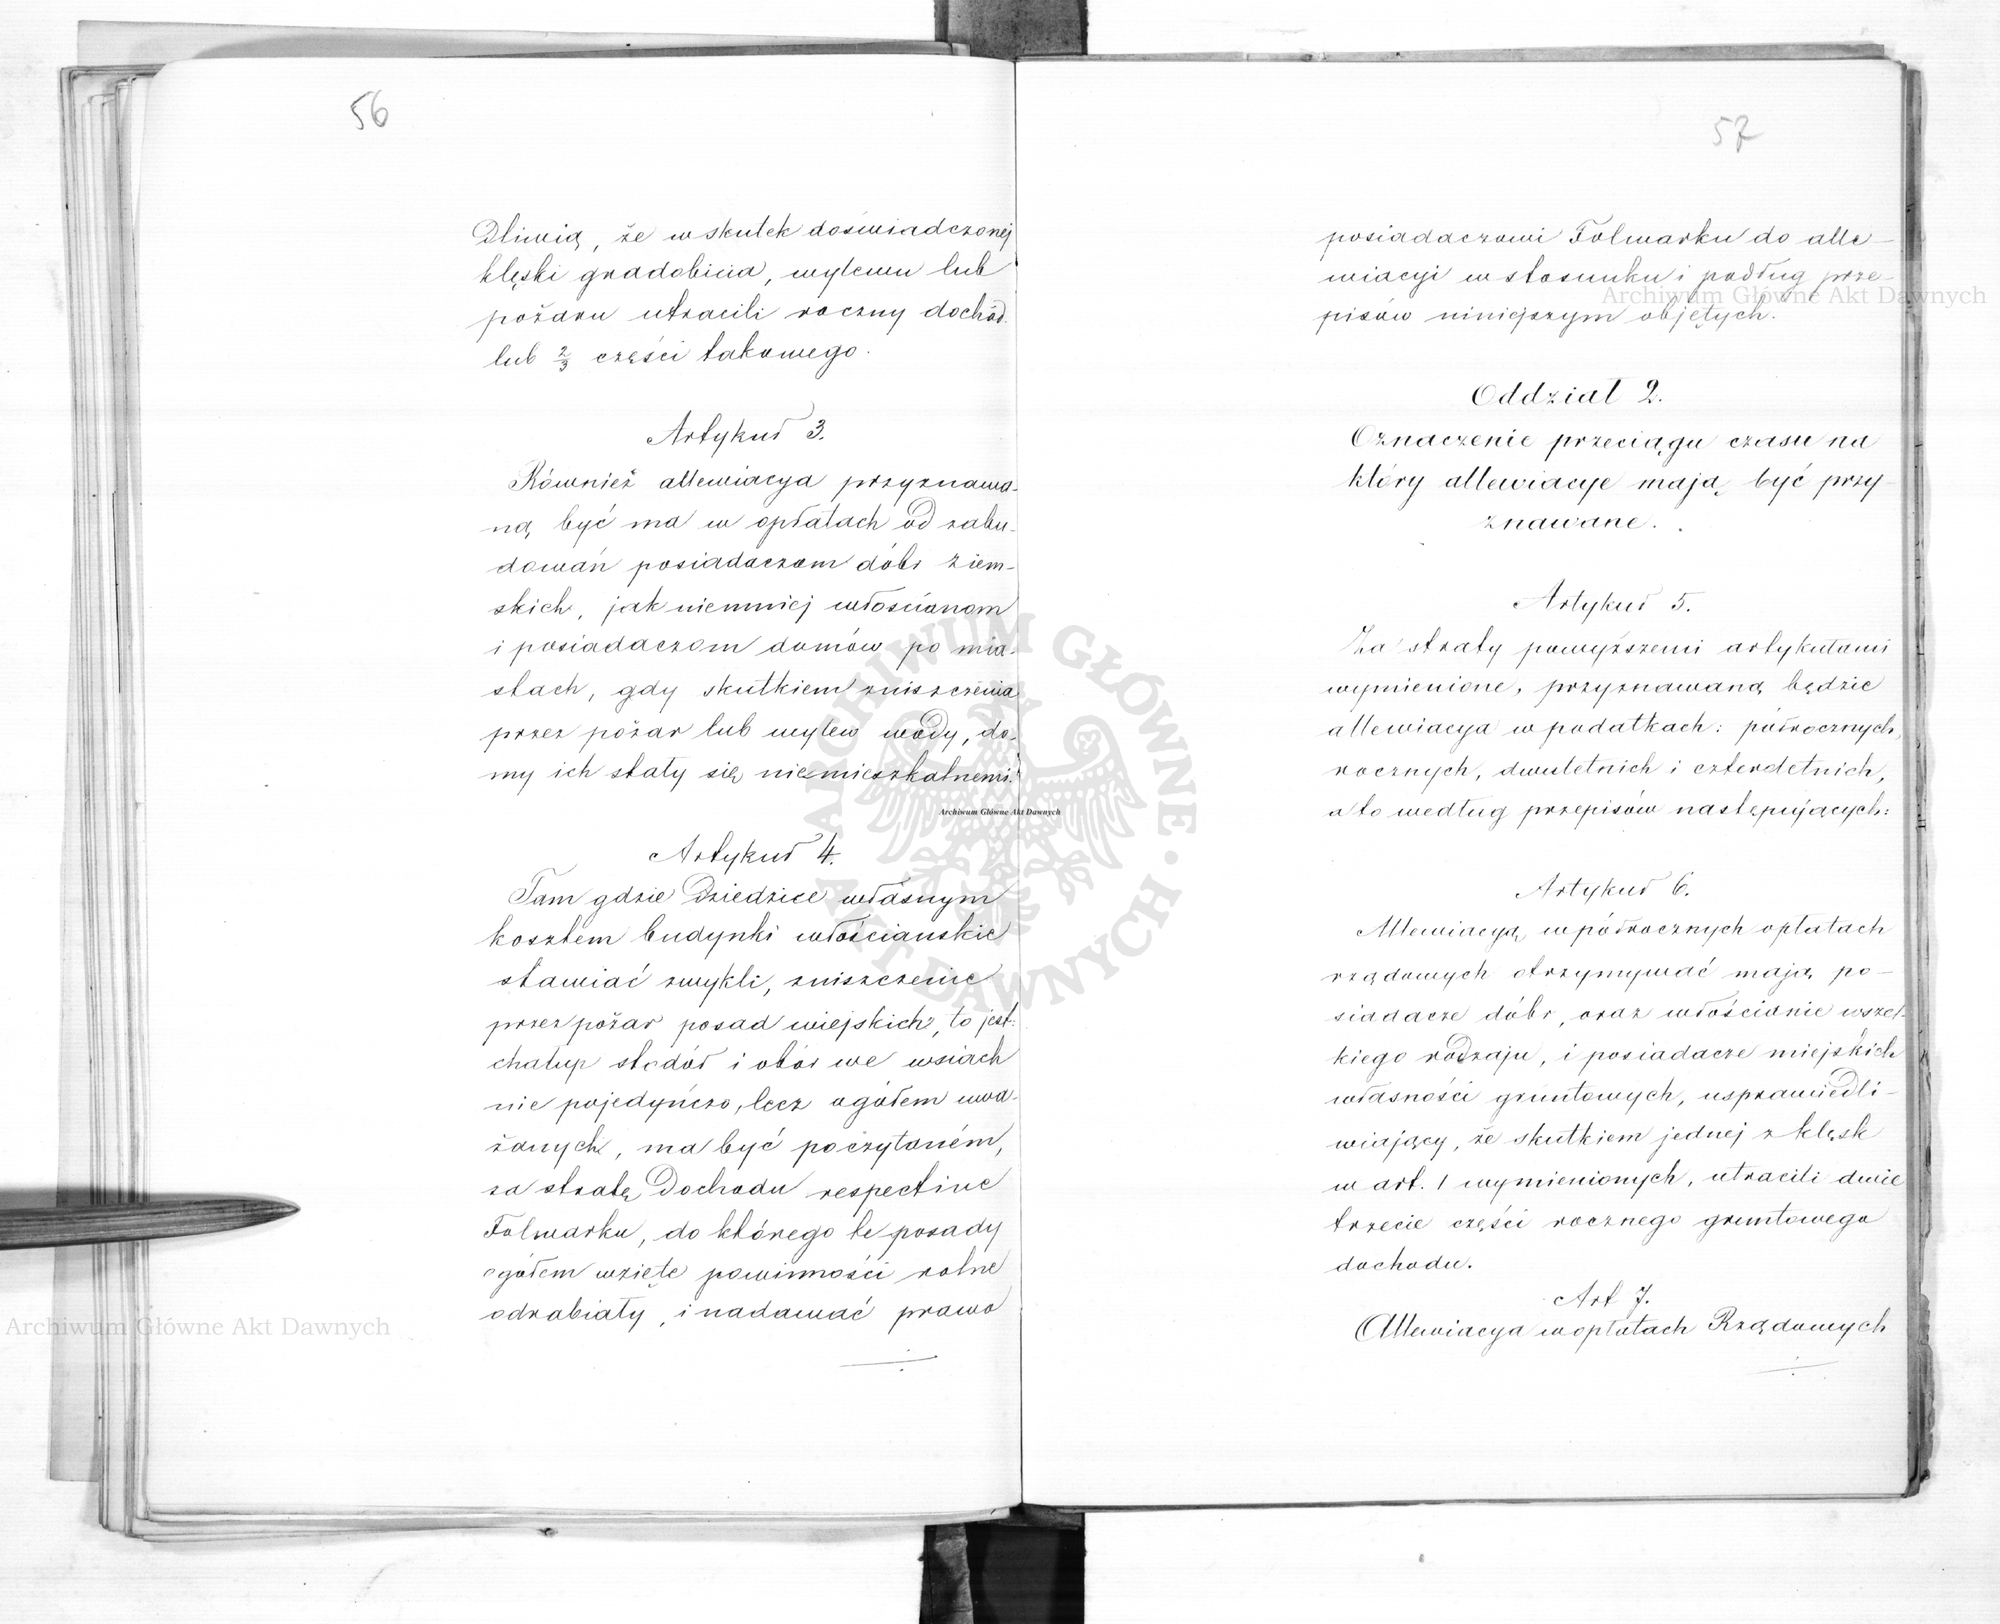 56
dliwią, że w skutek doświadczonej
klęski gradobicia, wylewu lub
pożaru utracili roczny dochód
lub 2/3 części takowego.
Artykuł 3.
Również allewiacya przyznawa-
ną być ma w opłatach od zabu-
dowań posiadaczom dóbr ziem-
skich, jak niemniej włościanom
i posiadaczom domów po mia-
stach, gdy skutkiem zniszczenia
przez pożar lub wylew wody, do-
my ich stały się niemieszkalnemi.
Artykuł 4.
Tam gdzie Dziedzice własnym
kosztem budynki włościanskie
stawiać zwykli, zniszczenie
przez pożar posad wiejskich, to jest:
chałup stodół i obór we wsiach
nie pojedyńczo, lecz ogółem uwa-
żanych, ma być poczytaném,
za stratę Dochodu respective
Folwarku, do którego te posady
ogółem wzięte powinności rolne
odrabiały, i nadawać prawo
57
posiadaczowi Folwarku do alle-
wiacyi w stosunku i podług prze-
pisów niniejszym objętych.
Oddział 2.
Oznaczenie przeciągu czasu na
który allewiacye mają być przy-
znawane.
Artykuł 5.
Za straty powyższemi artykułami
wymienione, przyznawaną będzie
allewiacya w podatkach: półrocznych,
rocznych, dwuletnich i czteroletnich,
a to według przepisów następujących:
Artykuł 6.
Allewiacyą w półrocznych opłatach
rządowych otrzymywać mają po-
siadacze dóbr, oraz włościanie wszel-
kiego rodzaju, i posiadacze miejskich
własności gruntowych, usprawiedli-
wiający, że skutkiem jednej z klęsk
w art. 1 wymienionych, utracili dwie
trzecie części rocznego gruntowego
dochodu.
Art 7.
Allewiacya w opłatach Rządowych
ARCHIWUM GŁÓWNE AKT DAWNYCH
Archiwum Główne Akt Dawnych
Archiwum Główne Akt Dawnych
Archiwum Główne Akt Dawnych